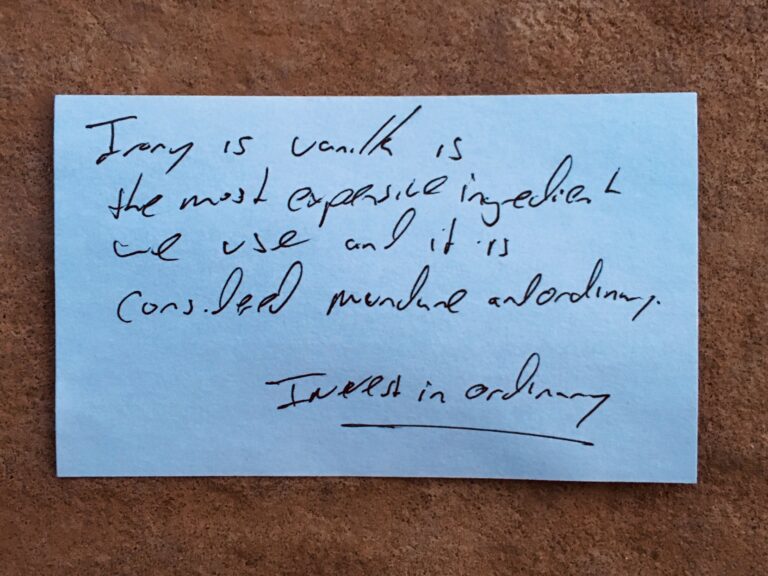 Irony is vanilla is
the most expensive ingredient
we use and it is
considered mundane and ordinary.
Invest in ordinary